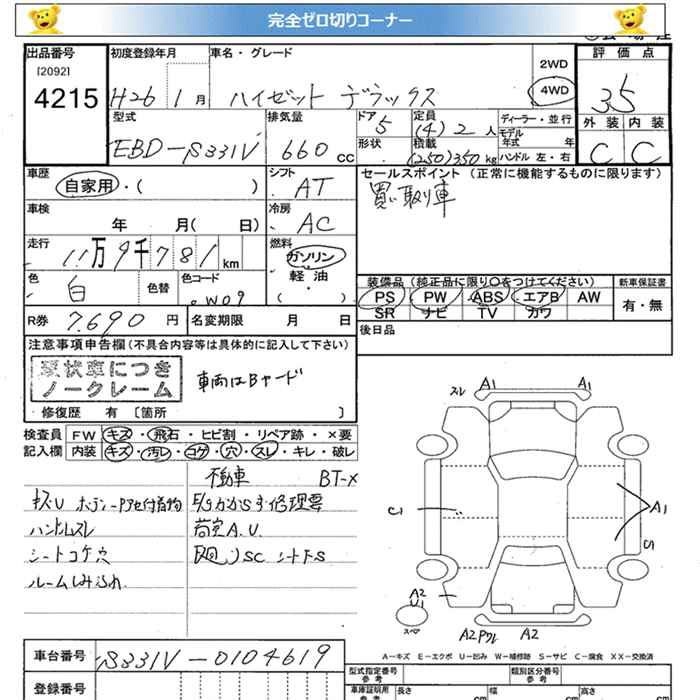 完全ゼロ切りコーナー
出品番号 初度登録年月 車名・グレード 2WD 評価点
[2092]
4215 H26 1月 ハイゼット デラックス 4WD 3.5
型式 排気量 ドア 5 定員 (4) 2人 ディーラー・並行 外装 内装
モデル年式 年
EBD-S331V 660 cc 形状 積載 (250) 350 kg ハンドル 左・右 C C
車歴 シフト セールスポイント(正常に機能するものに限ります)
自家用・( ) AT 買い取り車
車検 冷房
年 月( 日) AC
走行 燃料
11万9千781km ガソリン
軽油
( )
色 白 色替 色コード W09
装備品(純正品に限り○をつけてください) 新車保証書
PS PW ABS エアB AW 有・無
SR ナビ TV カワ
R券 7,690円 名変期限 月 日 後日品
注意事項申告欄(不具合内容等は具体的に記入して下さい)
現状車につき
ノークレーム 車両はBヤード
修復歴 有 [箇所 ]
検査員 FW キズ・飛石・ヒビ割・リペア跡・×要
記入欄 内装 キズ・汚レ・コゲ・穴・スレ・キレ・破レ
不動車 BT-×
ハンドルスレ
シートコゲ穴
荷室A.U.
スレ A1 A1
C1 A1
A2
U1
スペア
A2 A2
A-キズ E-エクボ U-凹み W-補修跡 S-サビ C-腐食 XX-交換済
車台番号 S331V-0104619
登録番号
型式指定番号 参考 類別区分番号 参考
車庫証明用 参考 長さ cm 幅 cm 高さ cm